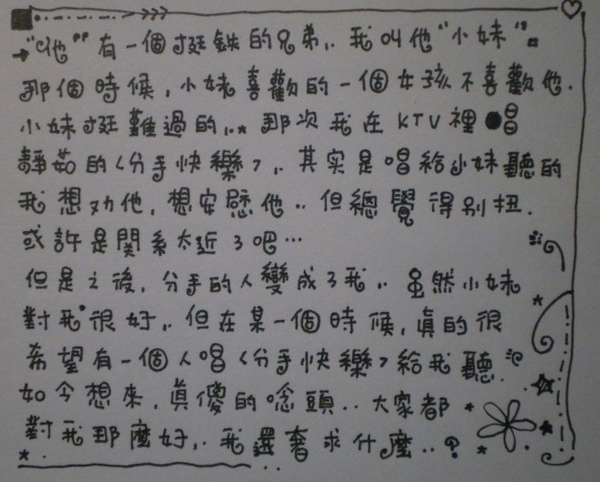 "他"有一個挺鉄的兄弟,. 我叫他"小妹"。
那個時候,小妹喜歡的一個女孩不喜歡他.
小妹挺難過的,. 那次我在KTV裡唱
靜茹的<分手快樂>,. 其实是唱給小妹聽的
我想劝他,想安慰他.. 但總覺得别扭.
或許是関系太近了吧…
但是之後,分手的人變成了我,. 虽然小妹
對我很好,. 但在某一個時候,真的很
希望有一個人唱<分手快樂>給我聽.
如今想來,真傻的唸頭.. 大家都
對我那麼好,. 我還奢求什麼..?